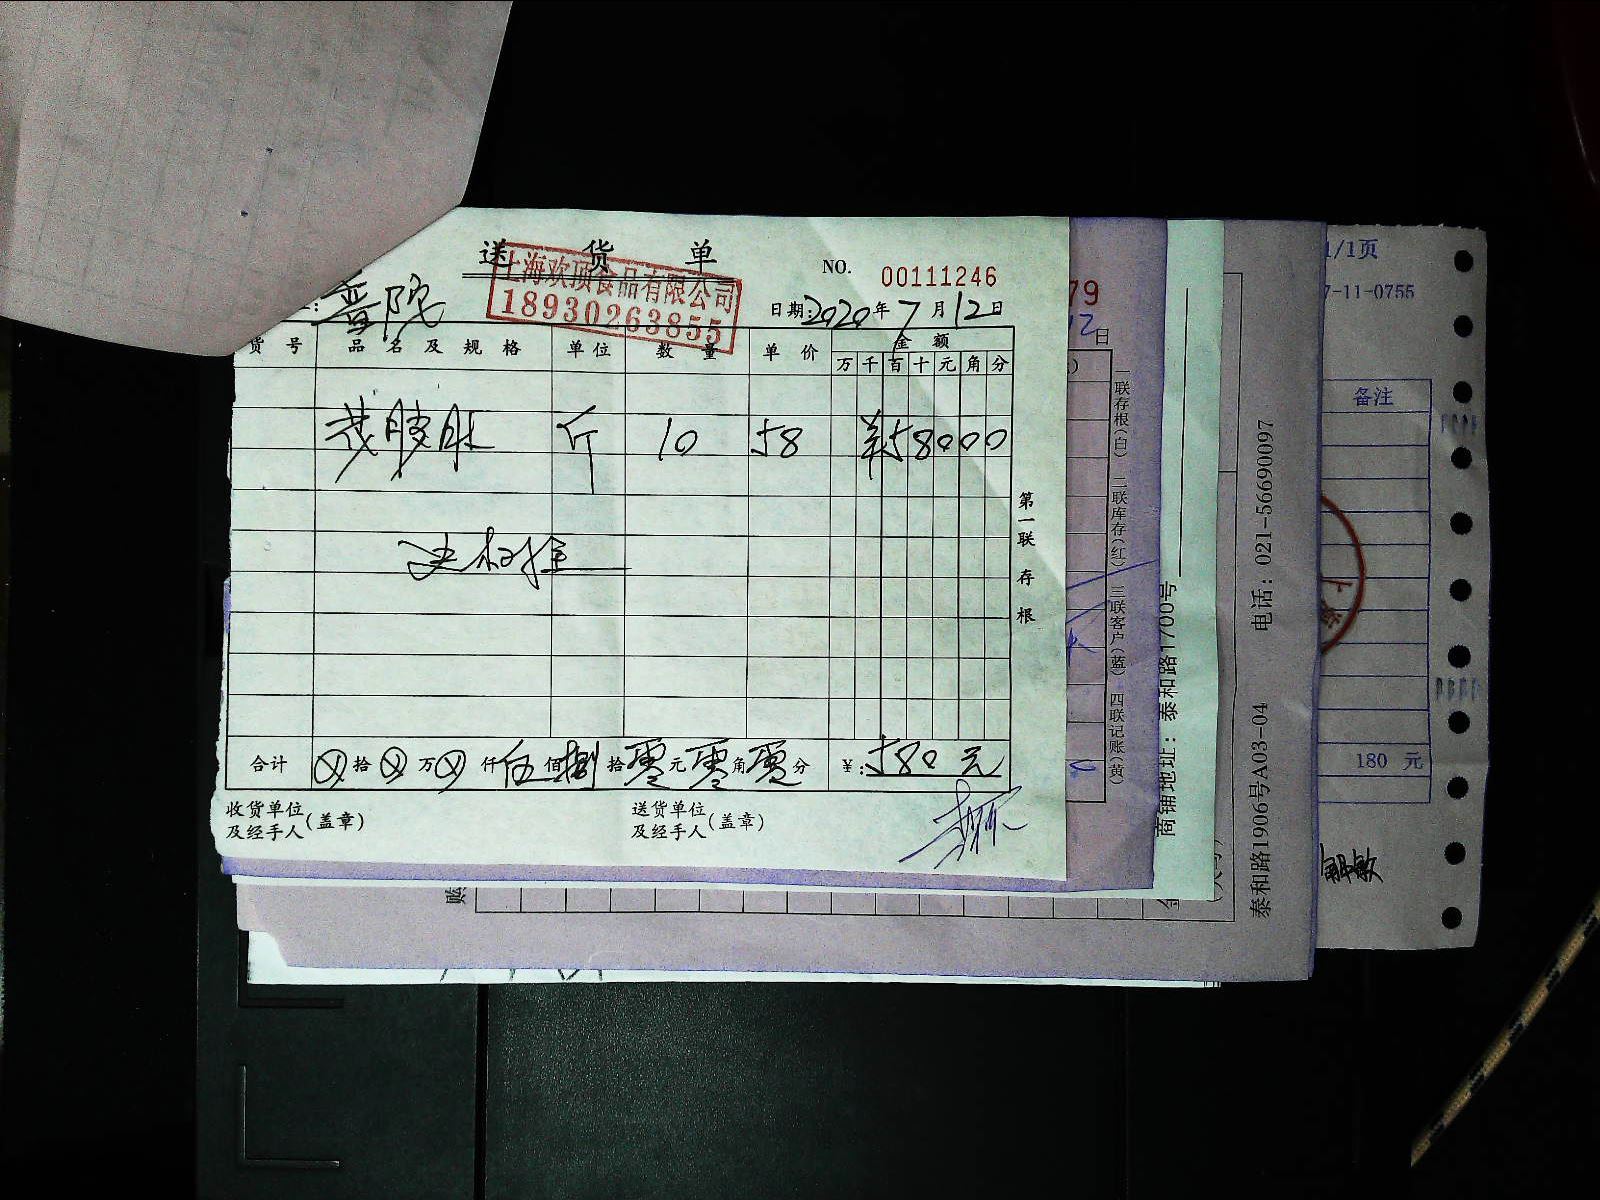 送货单
上海欢顶食品有限公司
18930263855
NO. 00111246
普院
日期:2020年7月12日
货号 品名及规格 单位 数量 单价 金额
万千百十元角分
斤 10 58 58000
第一联存根
合计 拾 万 仟伍佰捌拾零元零角零分 ¥:580元
收货单位及经手人(盖章)
送货单位及经手人(盖章)
79
12日
一联存根(白) 二联库存(红) 三联客户(蓝) 四联记账(黄)
商铺地址:泰和路1700号
泰和路1906号A03-04 电话:021-56690097
1/1页
7-11-0755
备注
180 元